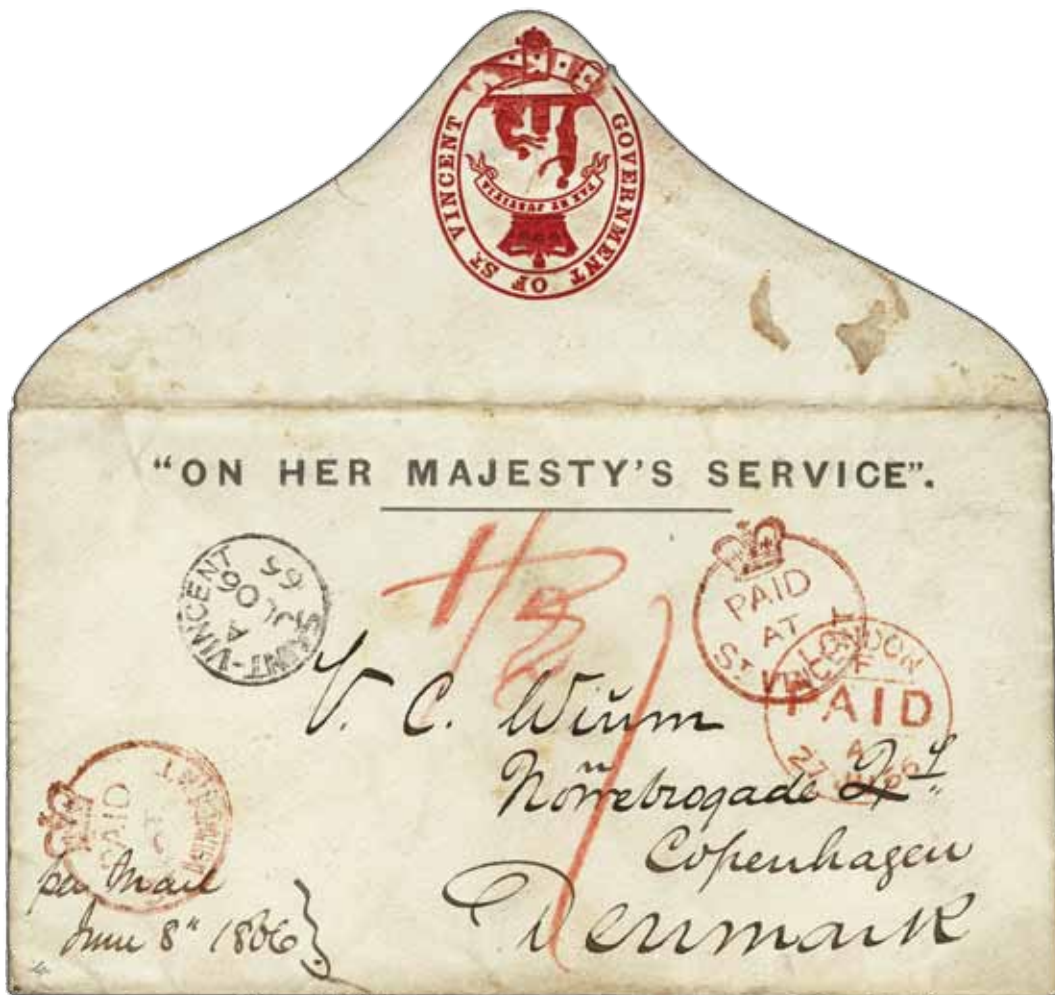 GOVERNMENT OF ST. VINCENT
PAX ET JUSTITIA
"ON HER MAJESTY'S SERVICE".
SAINT-VINCENT
A
JU 06
65
PAID
AT
ST. VINCENT
LONDON
F
PAID
A
27 66
V. C. Wiüm
Nörrebrogade
Copenhagen
Denmark
PAID
per Mail
June 8" 1866